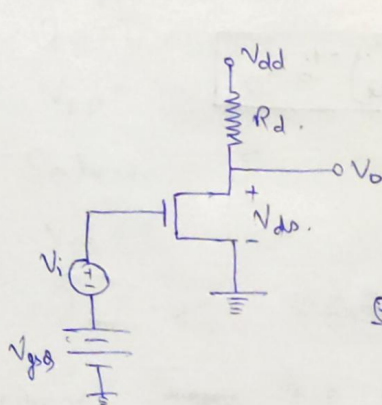 Vdd
Rd.
Vo
+
Vds.
-
Vi
+
-
VgsQ